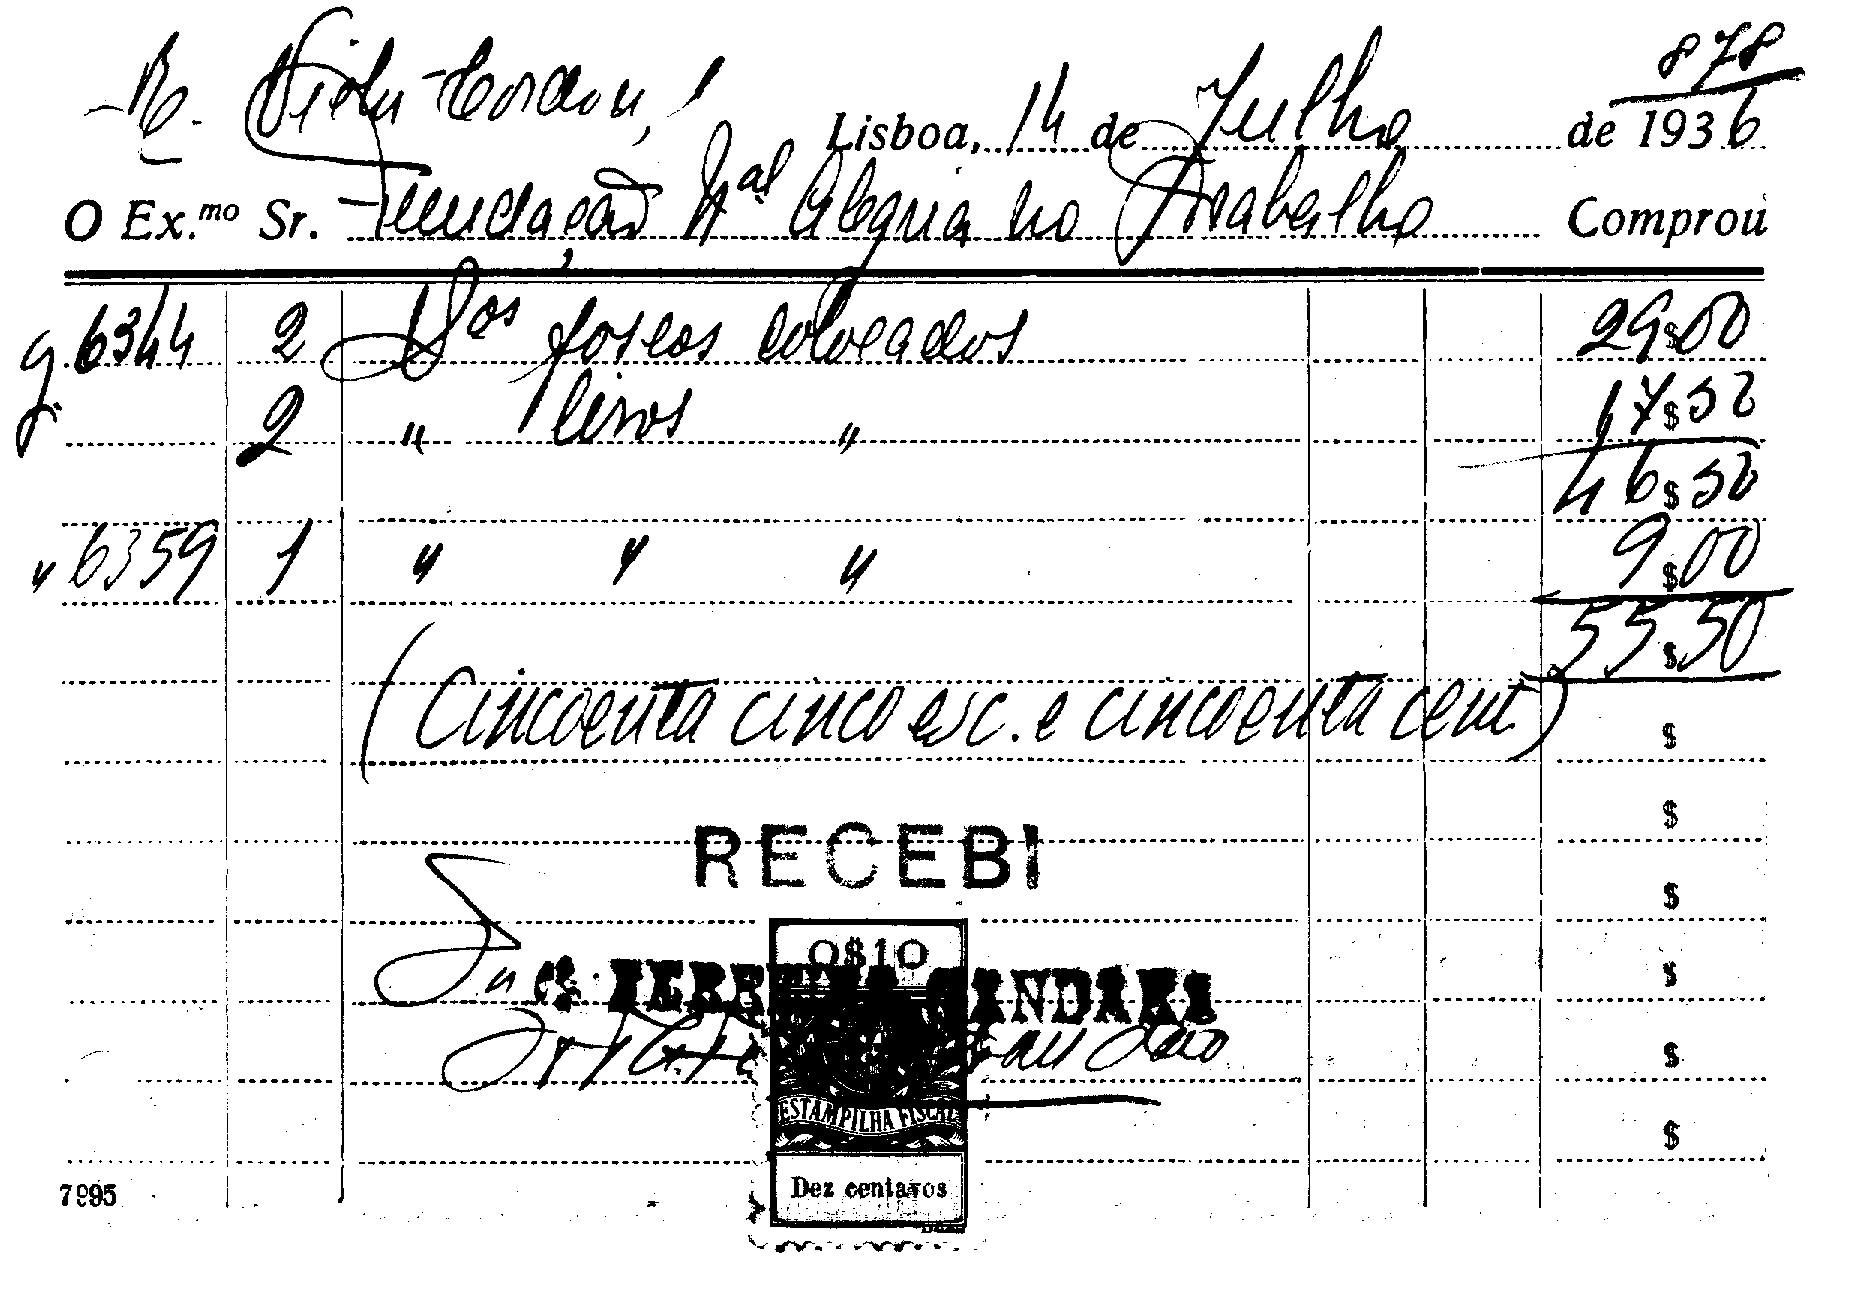 878
R. Victor Cordon, 1
Lisboa, 14 de Julho de 1936
O Ex.mo Sr. Fundação Nal Alegria no Trabalho Comprou
g. 6344 2 Vos foscos colocados 29$00
2 " lisos " 17$50
46$50
" 6359 1 " " " 9$00
55$50
(Cincoenta cinco esc. e cincoenta cent.)
$
RECEBI
$
$
0$10
$
$
ESTAMPILHA FISCAL
$
Dez centavos
7995